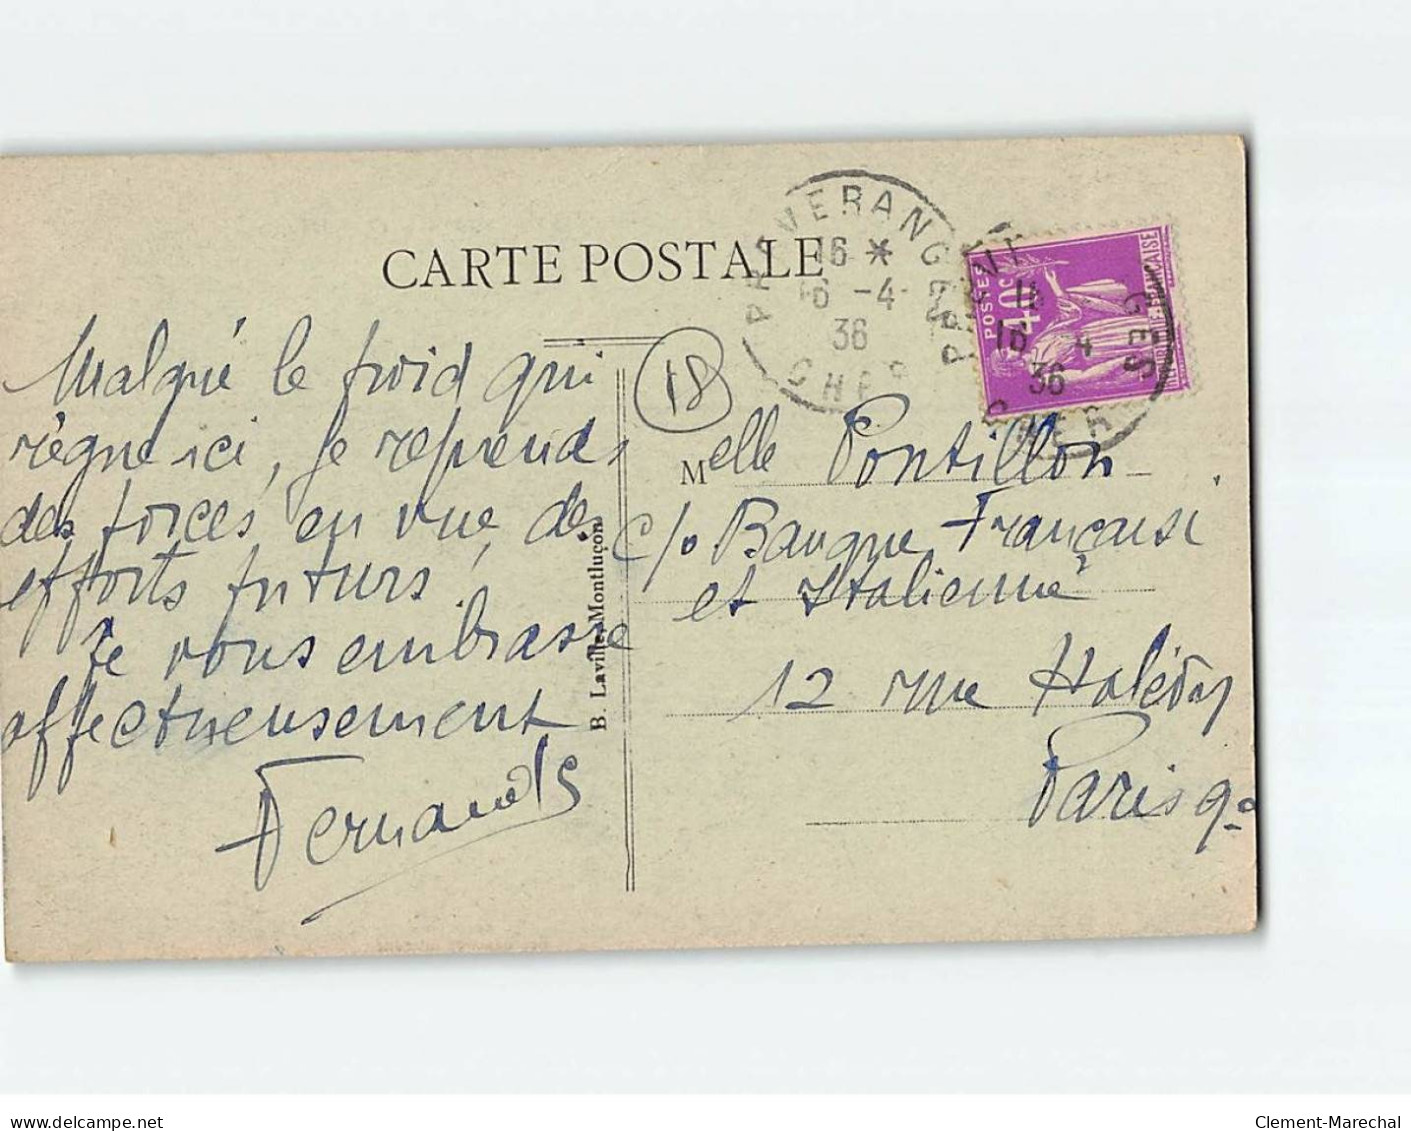 CARTE POSTALE
PREVERANGES
16 *
16 -4
36
CHER
POSTES
40c
GES
16
16 4
36
CHER
18
Malgré le froid qui
règne ici, je reprends
des forces en vue des
efforts futurs.
Je vous embrasse
affectueusement
Fernande
B. Laville, Montluçon
Melle Pontillon
c/o Banque Française
et Italienne
12 rue Halévy
Paris 9e
delcampe.net
Clement-Marechal